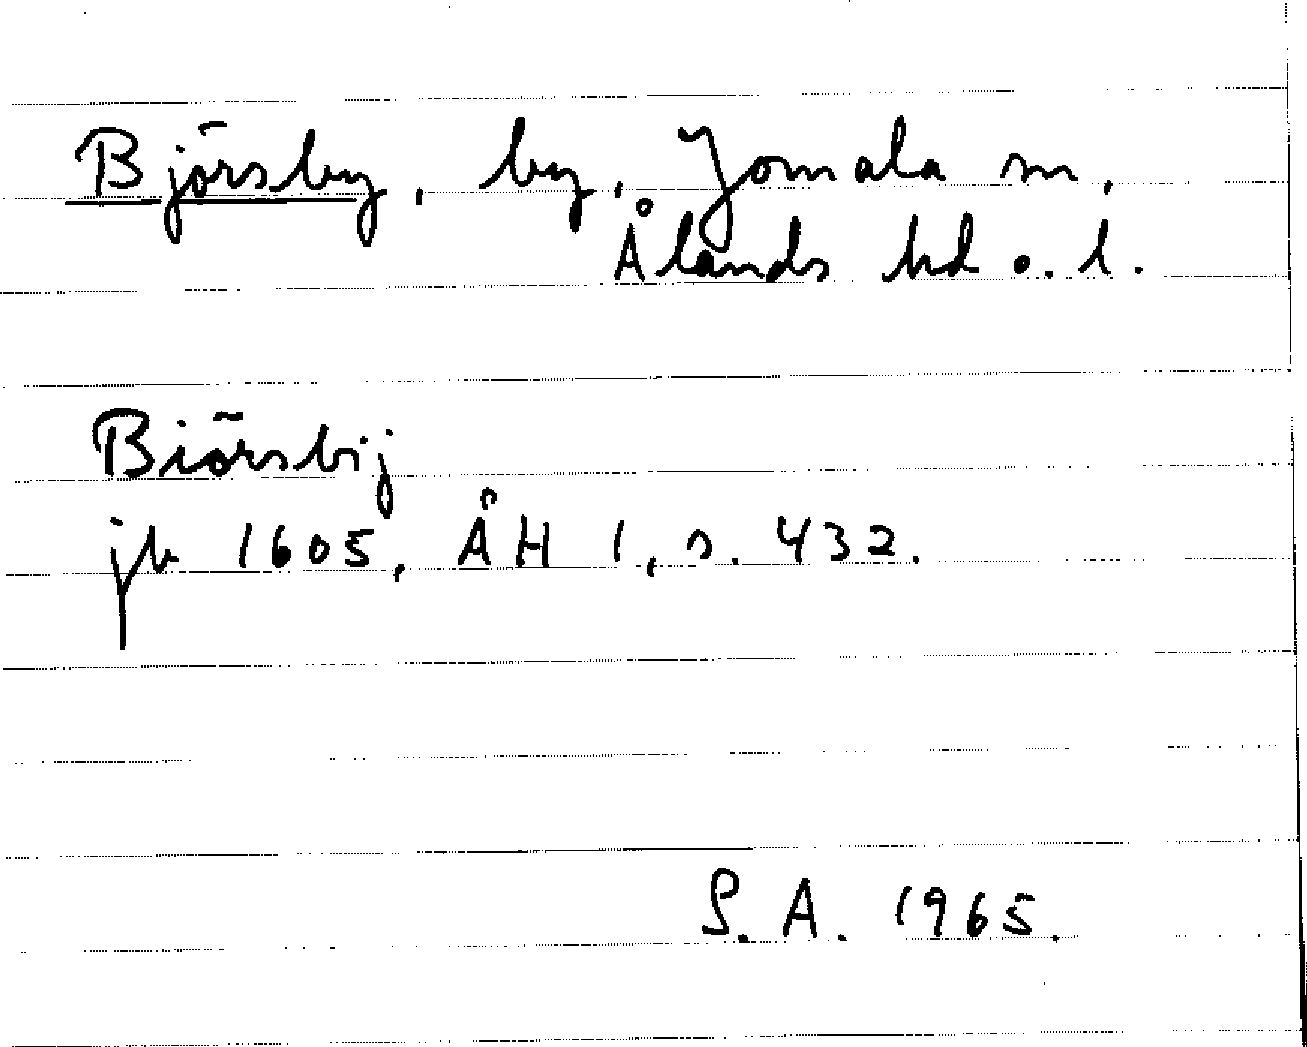 Björsby, by, Jomala sn,
Ålands hd o. l.
Biörsbij
jb 1605, ÅH 1, s. 432.
S. A. 1965.